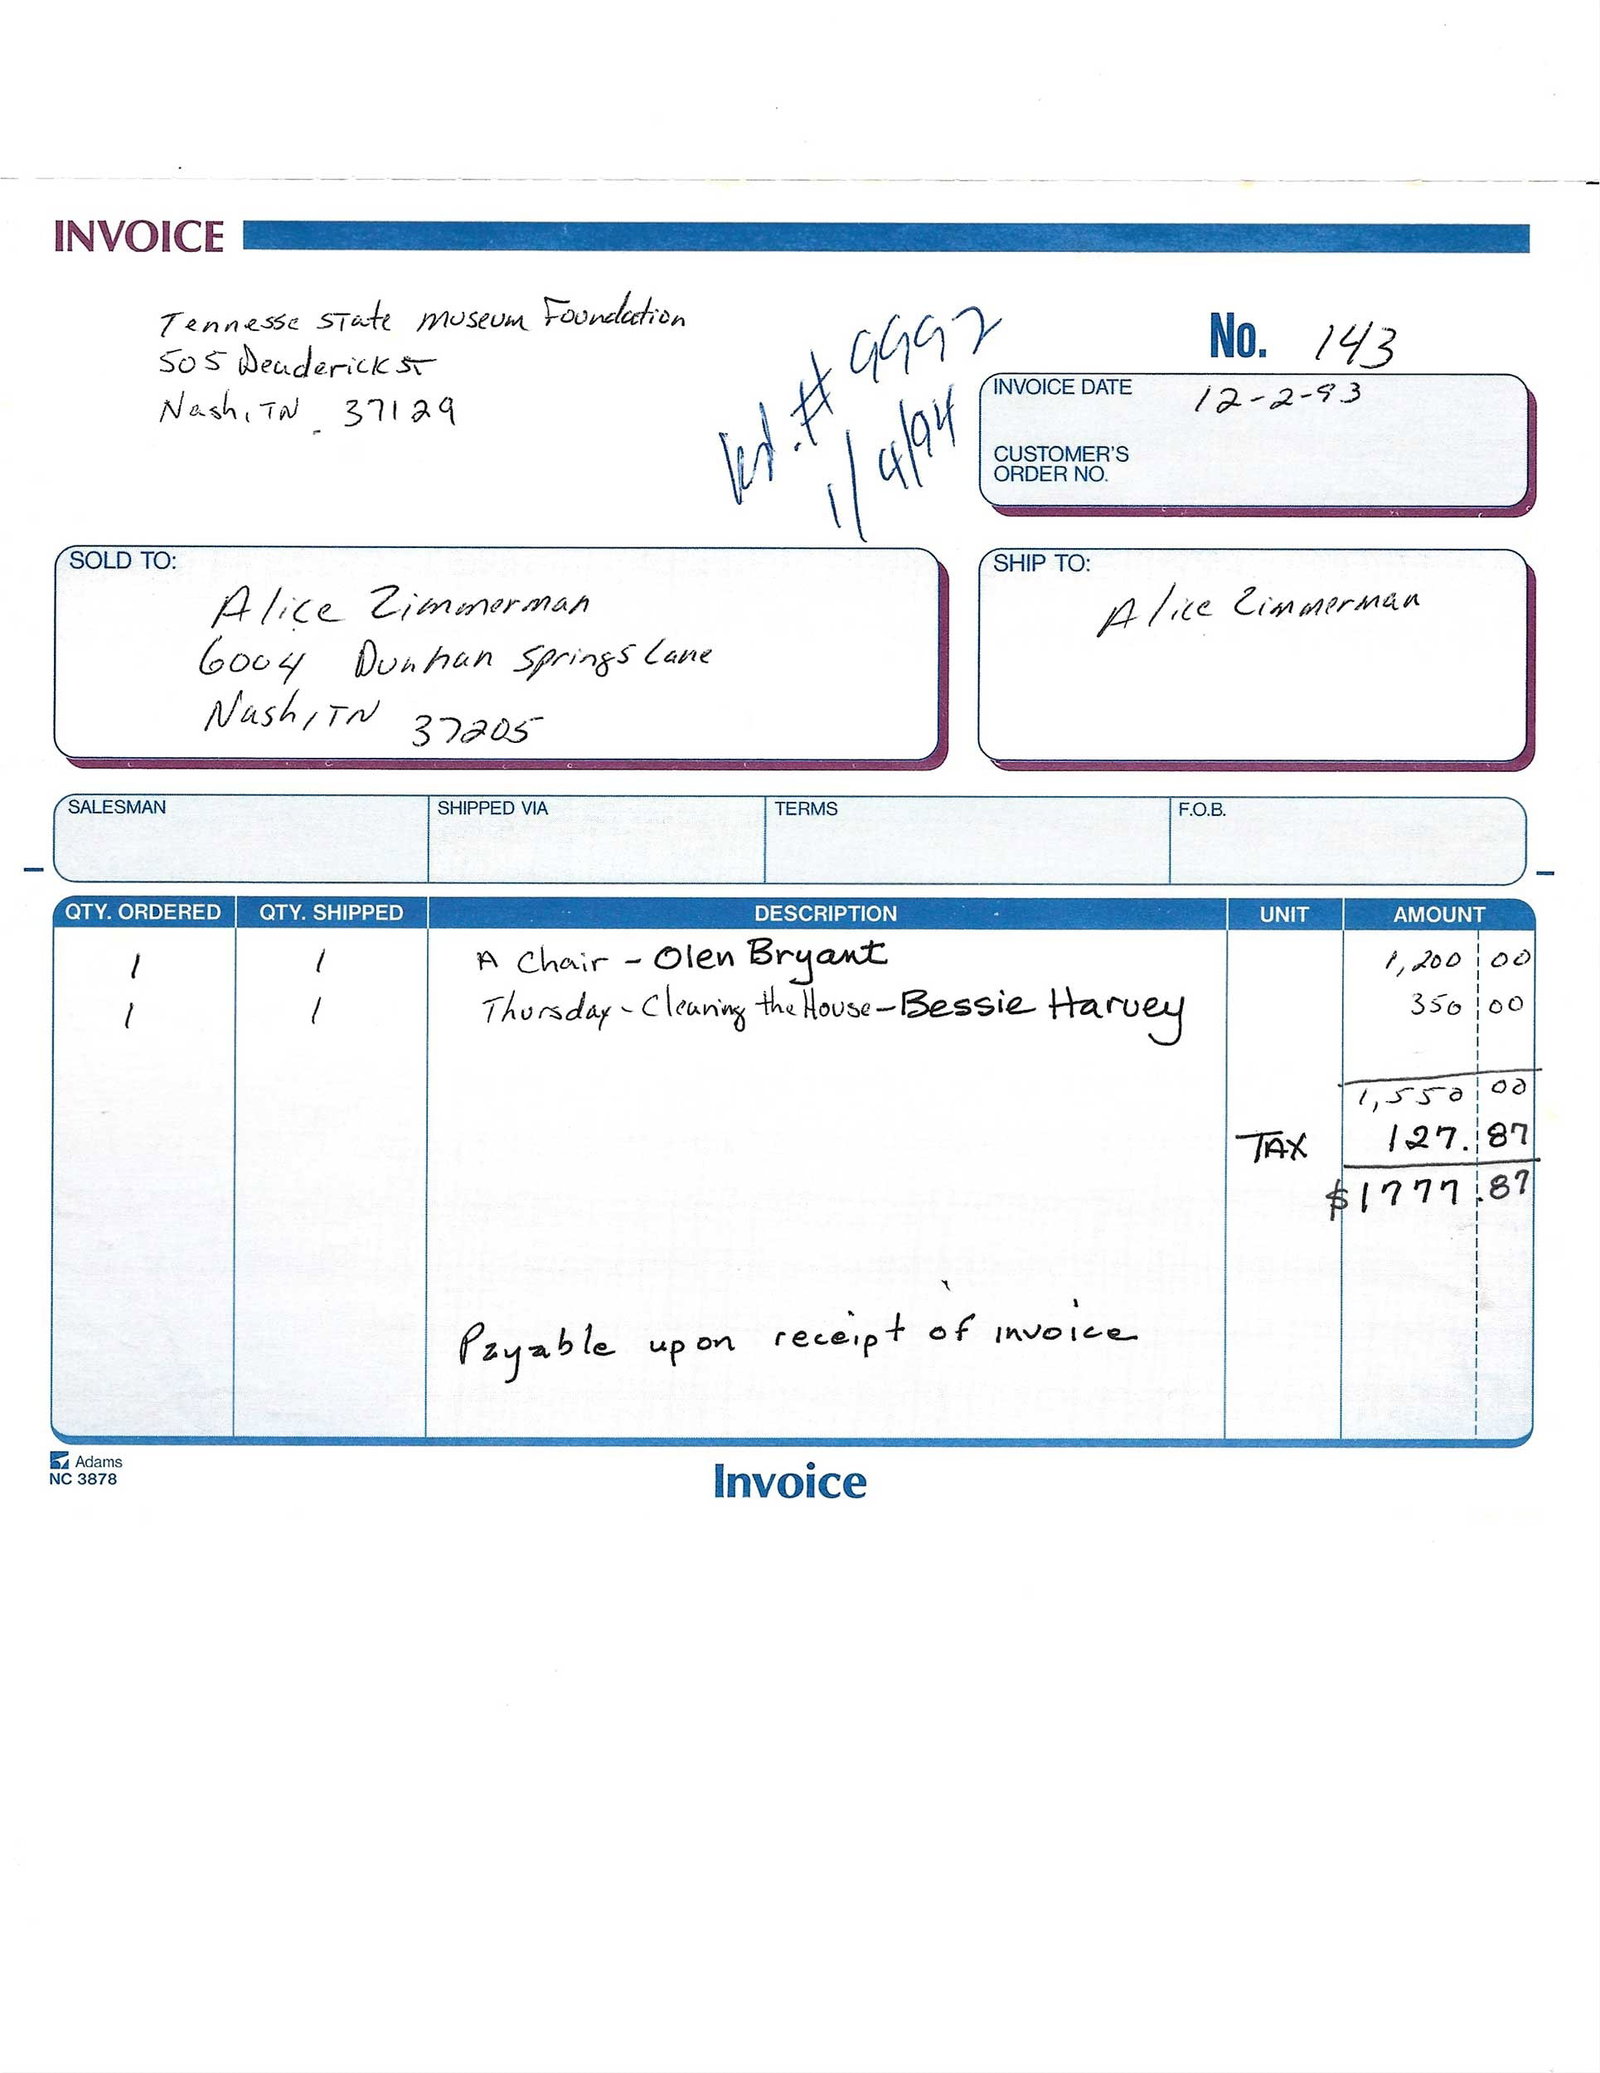 INVOICE
Tennesse State Museum Foundation
505 Deaderick St
Nash, TN. 37129
# 9992
1/4/94
No. 143
INVOICE DATE 12-2-93
CUSTOMER'S
ORDER NO.
SOLD TO:
Alice Zimmerman
6004 Dunhan Springs Lane
Nash, TN 37205
SHIP TO:
Alice Zimmerman
SALESMAN SHIPPED VIA TERMS F.O.B.
QTY. ORDERED QTY. SHIPPED DESCRIPTION UNIT AMOUNT
1 1 A Chair - Olen Bryant 1,200 00
1 1 Thursday - Cleaning the House - Bessie Harvey 350 00
1,550 00
TAX 127.87
$1777.87
Payable upon receipt of invoice
Adams
NC 3878
Invoice